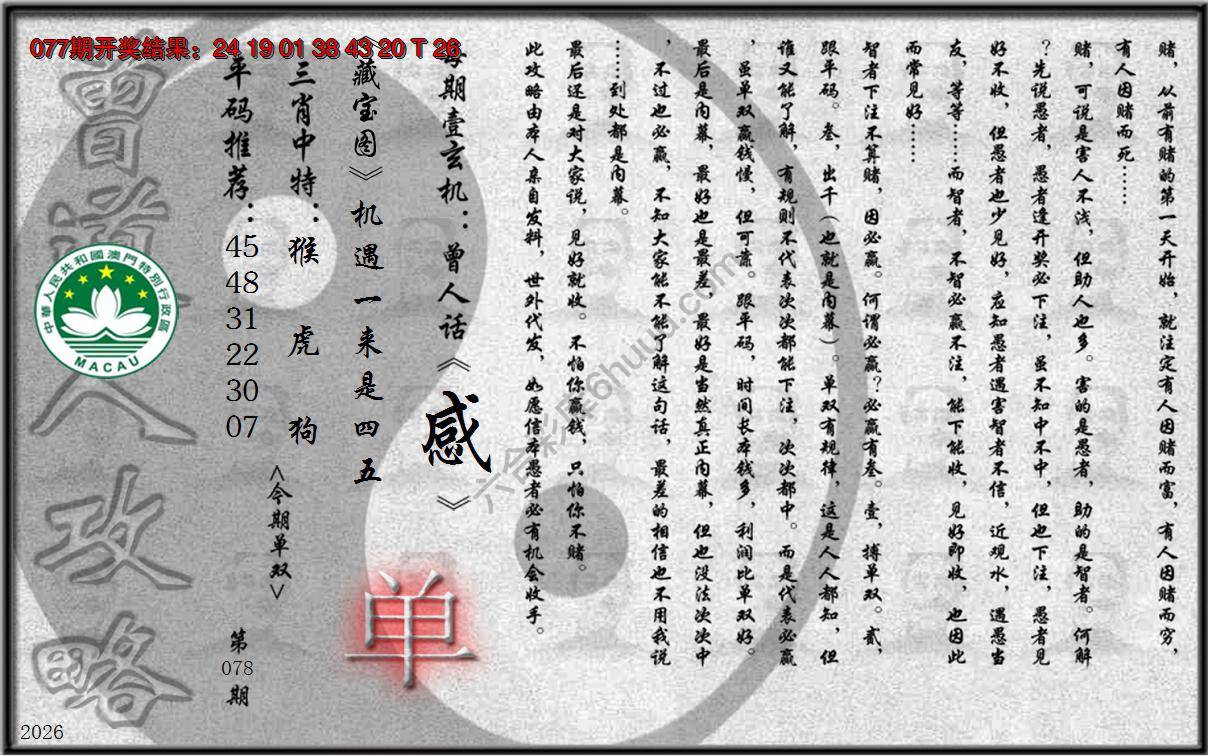 077期开奖结果：24 19 01 38 43 20 T 26
赌，从前有赌的第一天开始，就注定有人因赌而富，有人因赌而穷，
有人因赌而死……
赌，可说是害人不浅，但助人也多。害的是愚者，助的是智者。何解
？先说愚者，愚者逢开奖必下注，虽不知中不中，但也下注，愚者见
好不收，但愚者也少见好，应知愚者遇害智者不信，近观水，遇愚当
友，等等……而智者，不智必赢不注，能下能收，见好即收，也因此
而常见好……
智者下注不算赌，因必赢。何谓必赢？必赢有叁。壹，搏单双。贰，
跟平码。叁，出千（也就是内幕）。单双有规律，这是人人都知，但
谁又能了解，有规则不代表次次都能下注，次次都中。而是代表必赢
，虽单双赢钱慢，但可靠。跟平码，时间长本钱多，利润比单双好。
最后是内幕，最好也是最差，最好是当然真正内幕，但也没法次次中
，不过也必赢，不知大家能不能了解这句话，最差的相信也不用我说
……到处都是内幕。
最后还是对大家说，见好就收。不怕你赢钱，只怕你不赌。
此攻略由本人亲自发料，世外代发，如愿信本愚者必有机会收手。
每期壹玄机：曾人话《感》
《藏宝图》机遇一来是四五
三肖中特：猴 虎 狗
<今期单双>
单
平码推荐：45 48 31 22 30 07
第078期
曾道人攻略
中華人民共和國澳門特別行政區
MACAU
2026